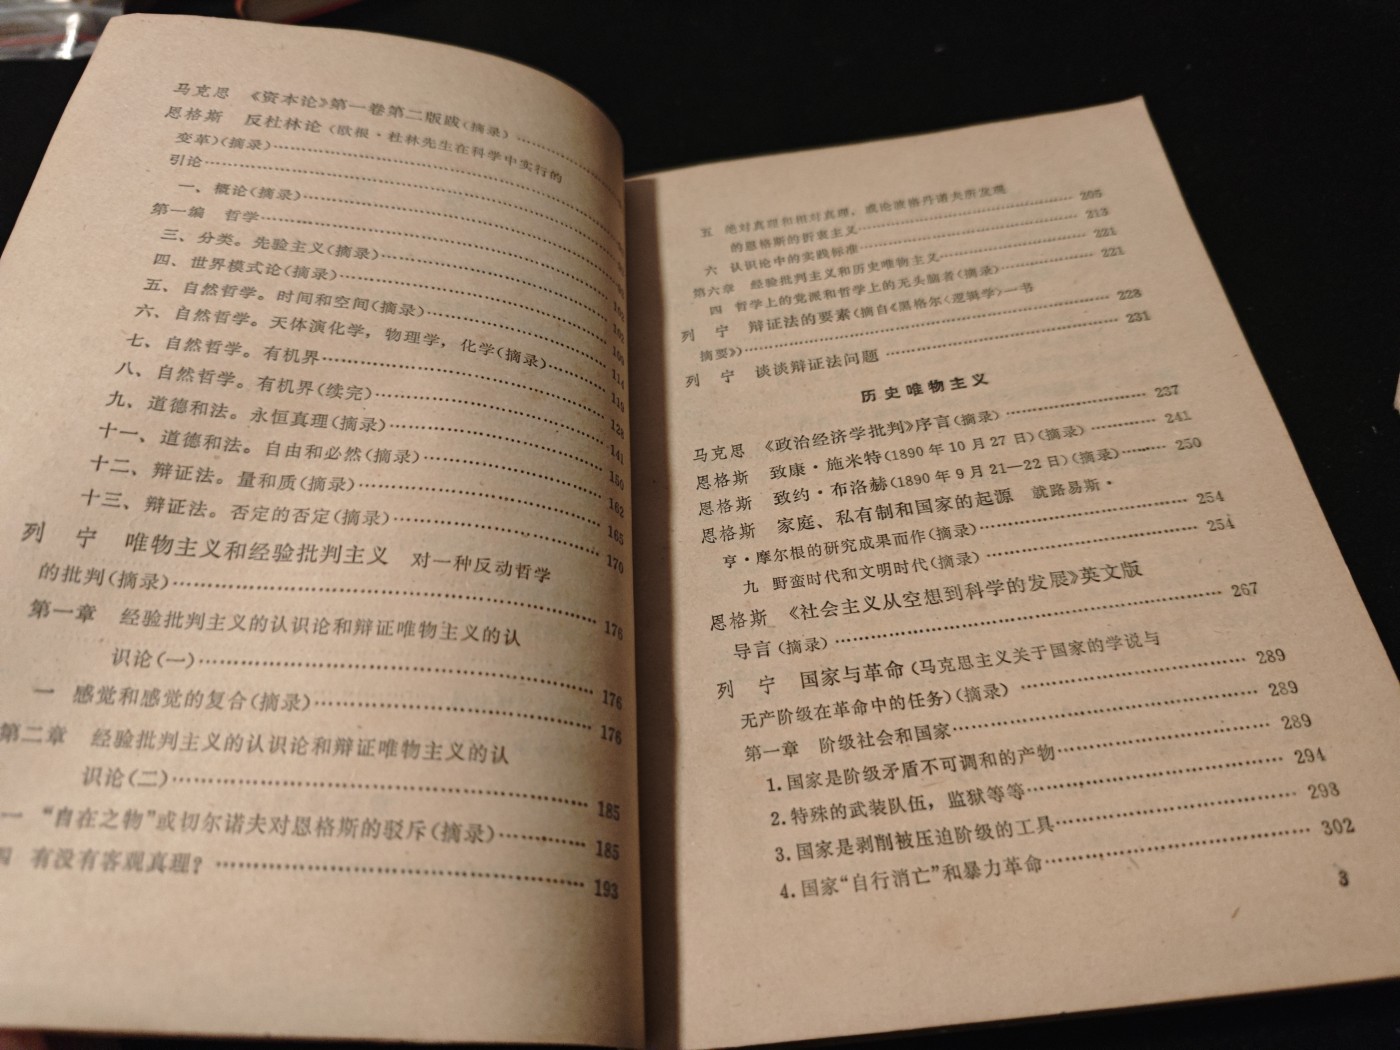 马克思 《资本论》第一卷第二版跋(摘录)……………
恩格斯 反杜林论(欧根·杜林先生在科学中实行的
变革)(摘录)……………
引论……………
一、概论(摘录)……………
第一编 哲学……………
三、分类。先验主义(摘录)……………
四、世界模式论(摘录)……………
五、自然哲学。时间和空间(摘录)……………102
六、自然哲学。天体演化学，物理学，化学(摘录)……………
七、自然哲学。有机界……………114
八、自然哲学。有机界(续完)……………119
九、道德和法。永恒真理(摘录)……………128
十一、道德和法。自由和必然(摘录)……………141
十二、辩证法。量和质(摘录)……………150
十三、辩证法。否定的否定(摘录)……………162
165
列 宁 唯物主义和经验批判主义 对一种反动哲学 170
的批判(摘录)……………176
第一章 经验批判主义的认识论和辩证唯物主义的认
识论(一)……………176
一 感觉和感觉的复合(摘录)……………176
第二章 经验批判主义的认识论和辩证唯物主义的认
识论(二)……………185
一 “自在之物”或切尔诺夫对恩格斯的驳斥(摘录)……………185
四 有没有客观真理？……………193
五 绝对真理和相对真理，或论波格丹诺夫所发现
的恩格斯的折衷主义……………205
六 认识论中的实践标准……………213
第六章 经验批判主义和历史唯物主义……………221
四 哲学上的党派和哲学上的无头脑者(摘录)……………221
列 宁 辩证法的要素(摘自《黑格尔〈逻辑学〉一书
摘要》)……………228
列 宁 谈谈辩证法问题……………231
历史唯物主义
马克思 《政治经济学批判》序言(摘录)……………237
恩格斯 致康·施米特(1890年10月27日)(摘录)……………241
恩格斯 致约·布洛赫(1890年9月21—22日)(摘录)………250
恩格斯 家庭、私有制和国家的起源 就路易斯·
亨·摩尔根的研究成果而作(摘录)……………254
九 野蛮时代和文明时代(摘录)……………254
恩格斯 《社会主义从空想到科学的发展》英文版
导言(摘录)……………267
列 宁 国家与革命(马克思主义关于国家的学说与
无产阶级在革命中的任务)(摘录)……………289
第一章 阶级社会和国家……………289
1.国家是阶级矛盾不可调和的产物……………289
2.特殊的武装队伍，监狱等等……………294
3.国家是剥削被压迫阶级的工具……………298
4.国家“自行消亡”和暴力革命……………302
3